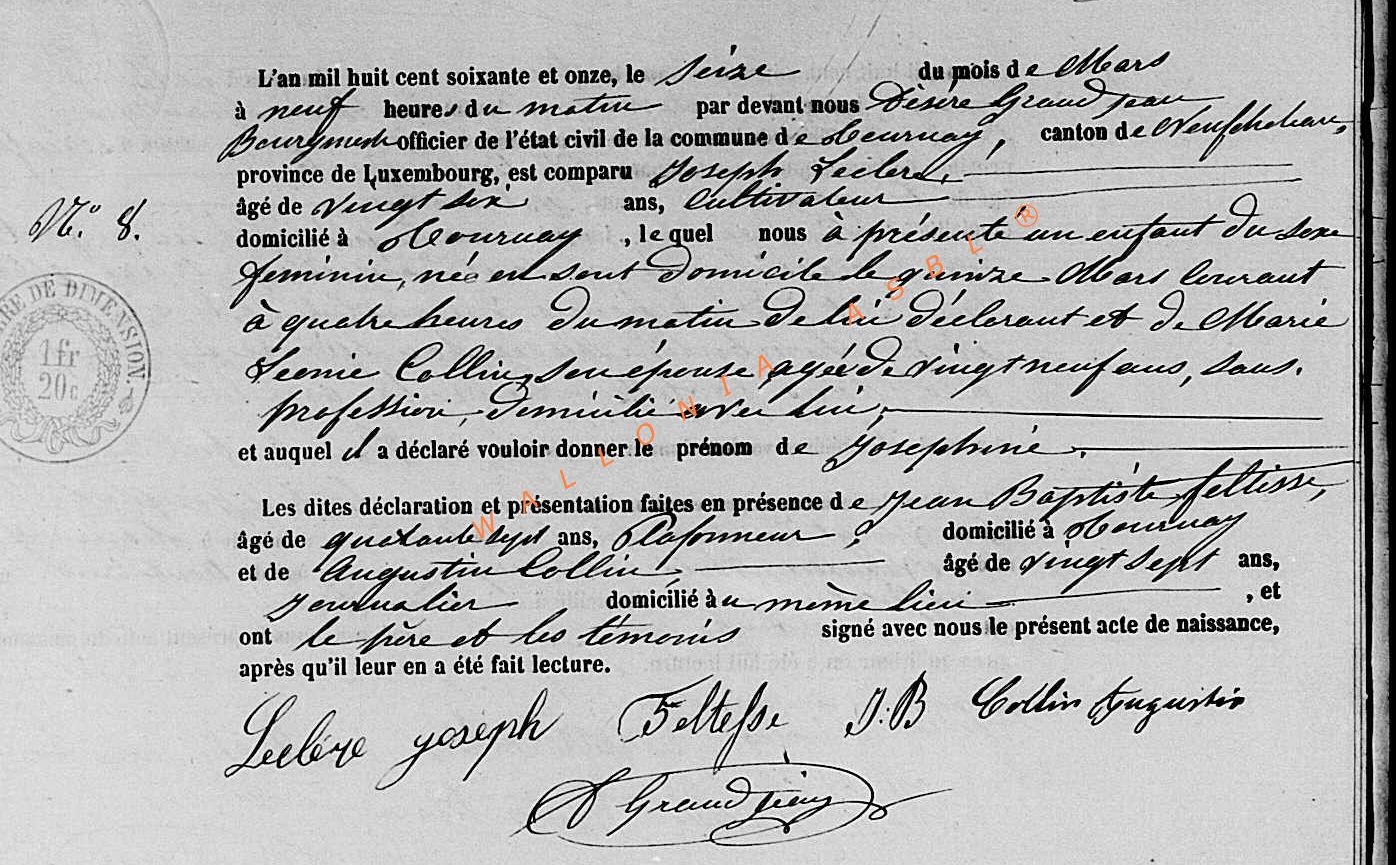 L'an mil huit cent soixante et onze, le seize du mois de Mars
à neuf heures du matin par devant nous Désiré Grandjean
Bourgmestre officier de l'état civil de la commune de Tournay, canton de Neufchateau,
province de Luxembourg, est comparu Joseph Leclere,
N° 8.
âgé de vingt six ans, Cultivateur
domicilié à Tournay, lequel nous à présenté un enfant du sexe
feminin, née en sont domicile le quinze Mars courant
TIMBRE DE DIMENSION.
1 fr
20 c
à quatre heures du matin de lui déclarant et de Marie
Leonie Collin, son épouse, agée de vingt neuf ans, sans
profession, domicilié avec lui,
et auquel il a déclaré vouloir donner le prénom de Josephine.
Les dites déclaration et présentation faites en présence de Jean Baptiste Feltisse,
âgé de quarante sept ans, Plafonneur, domicilié à Tournay
et de Augustin Collin, âgé de vingt sept ans,
Journalier domicilié à u même lieu, et
ont le père et les témoins signé avec nous le présent acte de naissance,
après qu'il leur en a été fait lecture.
Leclére joseph Feltesse J:B Collin Augustin
D Grandjean
WALLONIA ASBL ®